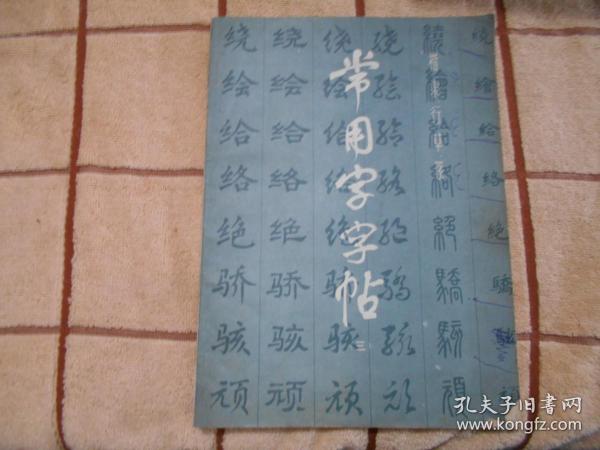 常用字字帖
三
绕 绘 给 络 绝 骄 骇 顽
绕 绘 给 络 绝 骄 骇 顽
绕 绘 给 络 绝 骄 骇 顽
绕 绘 给 络 绝 骄 骇 顽
繞 繪 給 絡 絕 驕 駭 頑
繞 繪 給 絡 絕 驕
孔夫子旧书网
www.kongfz.com